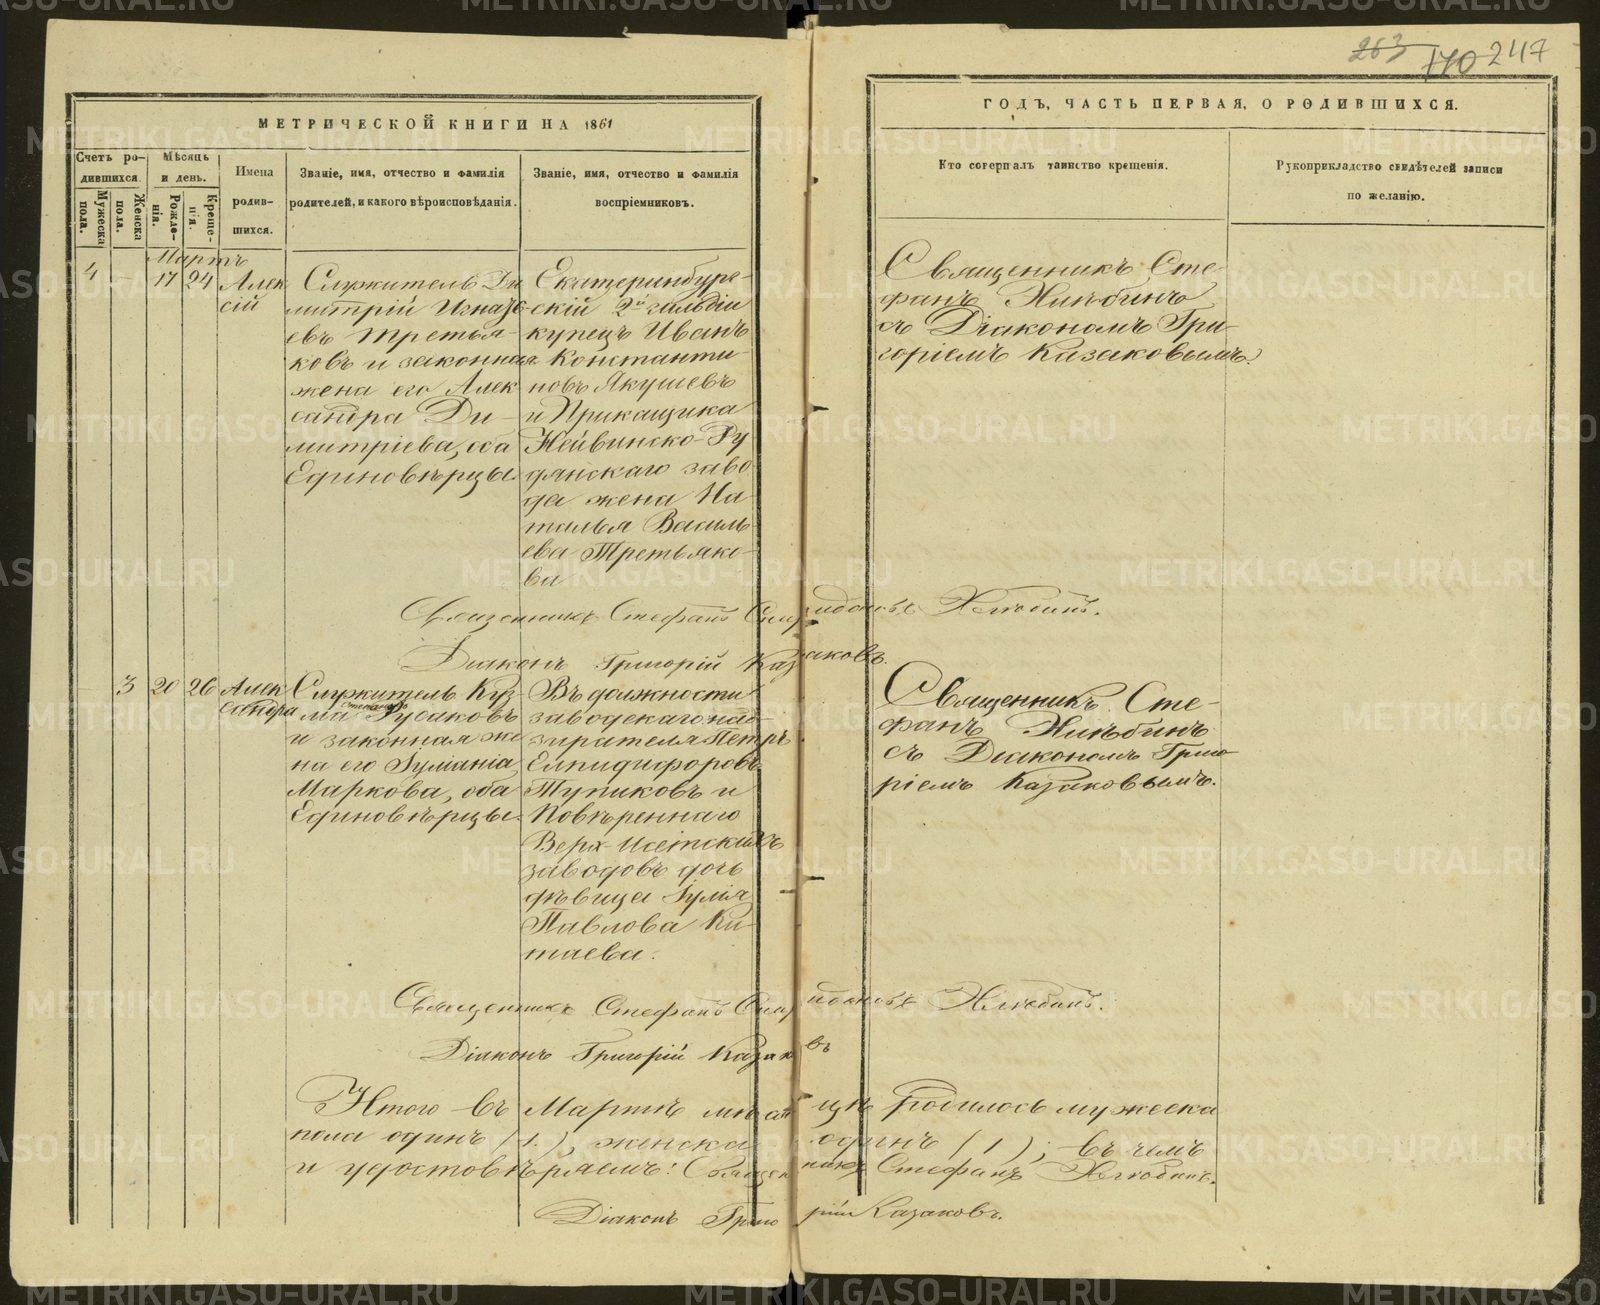 263 170 247
МЕТРИЧЕСКОЙ КНИГИ НА 1861
ГОДЪ, ЧАСТЬ ПЕРВАЯ, О РОДИВШИХСЯ.
Счетъ ро-
дившихся.
Мужеска
пола.
Женска
пола.
Мѣсяцъ
и день.
Рожде-
нія.
Креще-
нія.
Имена
родив-
шихся.
Званіе, имя, отчество и фамилія
родителей, и какого вѣроисповѣданія.
Званіе, имя, отчество и фамилія
воспріемниковъ.
Кто совершалъ таинство крещенія.
Рукоприкладство свидѣтелей записи
по желанію.
Мартъ
4 — 17 24
Алек
сій
Служитель Ди
митрій Игнать
евъ Третья-
ковъ и законная
жена его Алек
сандра Ди-
митріева, оба
Единовѣрцы.
Екатеринбург-
скій 2й гильдіи
купецъ Иванъ
Константи-
новъ Якушевъ
и Прикащика
Нейвинско-Ру
дянскаго заво
да жена На-
талья Василь-
ева Третьяко-
ва
Священникъ Сте-
фанъ Хлѣбинъ
съ Діакономъ Гри-
горіемъ Казаковымъ.
Священникъ Стефанъ Спиридоновъ Хлюбинъ.
Діаконъ Григорій Казаковъ.
3 20 26
Алек
сандра
Служитель Куз-
ма Степановъ Русаковъ
и законная же
на его Іуліанія
Маркова, оба
Единовѣрцы.
Въ должности
заводскаго над-
зирателя Петръ
Елпидифоровъ
Тупиковъ и
Повѣреннаго
Верх-Исетскихъ
заводовъ дочь
дѣвица Іулія
Павлова Ки-
таева.
Священникъ Сте-
фанъ Хлѣбинъ
съ Діакономъ Григо
ріемъ Казаковымъ.
Священникъ Стефанъ Спиридоновъ Хлюбинъ.
Діаконъ Григорій Казаковъ
Итого въ Мартѣ мѣсяцѣ родилось мужеска
пола одинъ (1.), женска одинъ (1); въ чемъ
и удостовѣряемъ: Священникъ Стефанъ Хлюбинъ.
Діаконъ Григорій Казаковъ.
METRIKI.GASO-URAL.RU